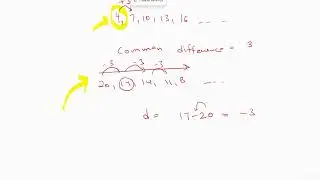 +3
4, 7, 10, 13, 16 ....
Common difference = 3
-3 -3 -3
20, 17, 14, 11, 8 ....
d = 17-20 = -3